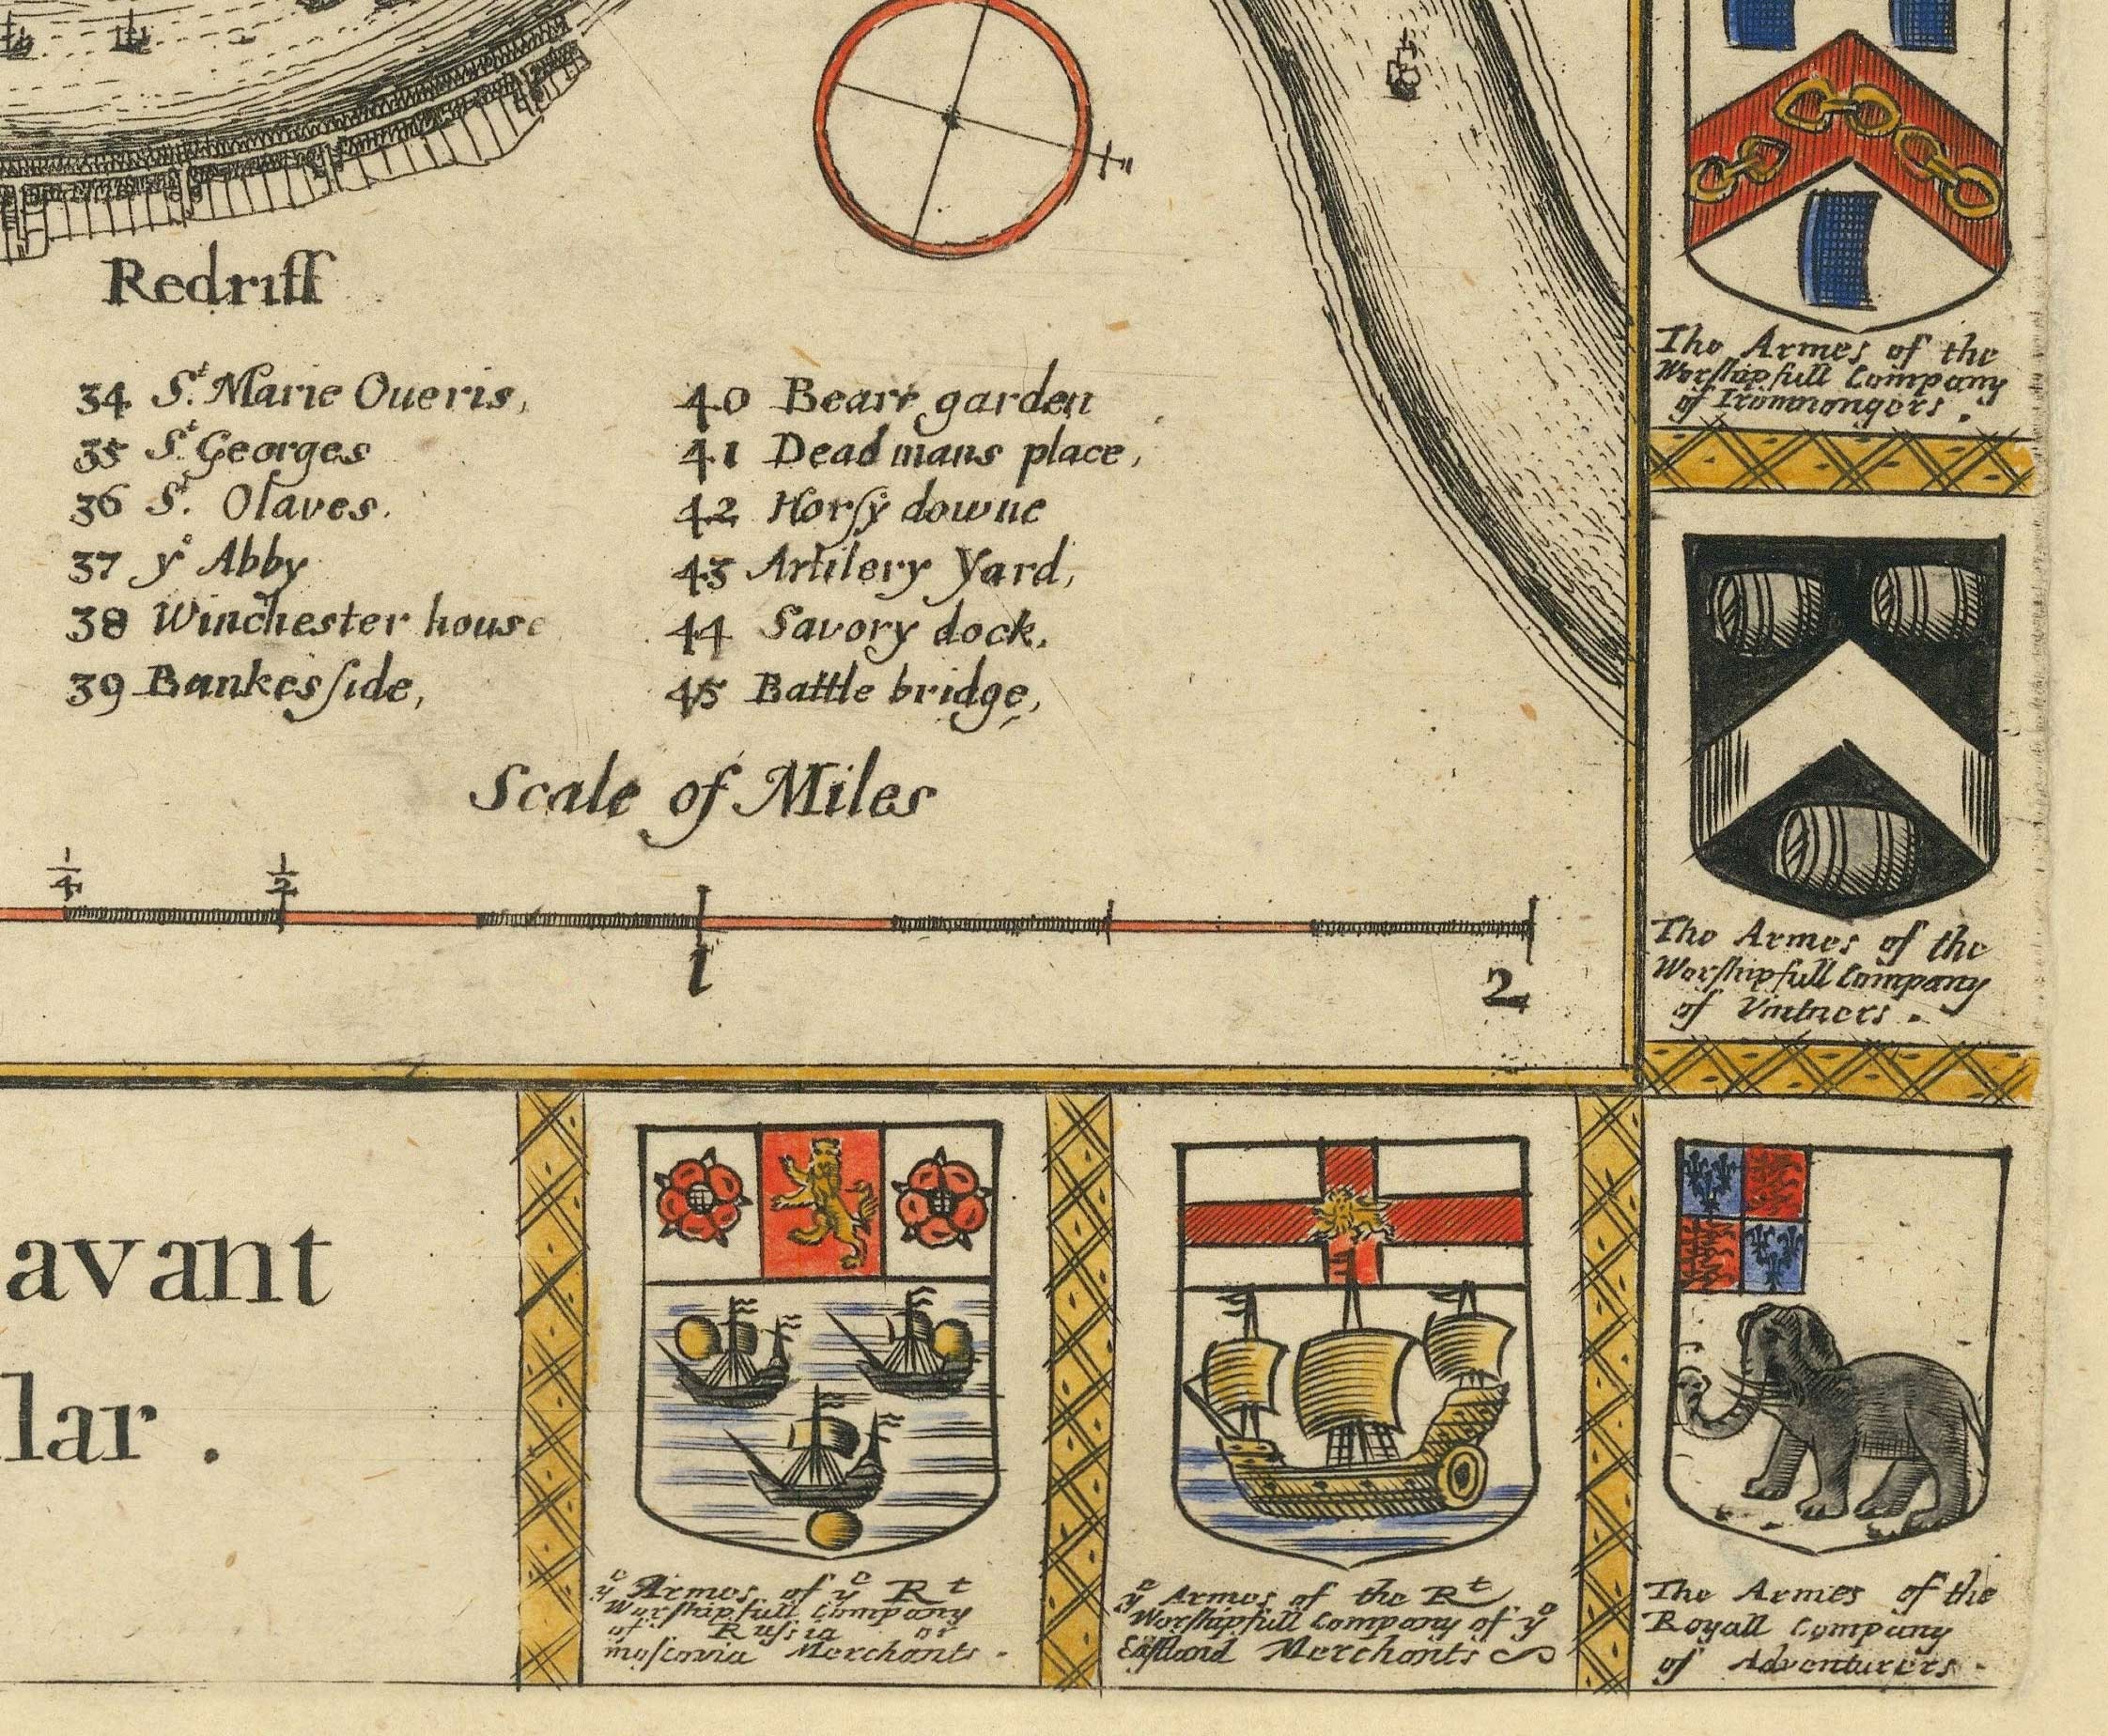 Redriff
34 St. Marie Oueris,
35 St. Georges
36 St. Olaves.
37 ye Abby
38 Winchester house
39 Bankesſide,
40 Beare garden
41 Dead mans place,
42 Horſy downe
43 Artilery Yard,
44 Savory dock.
45 Battle bridge,
Scale of Miles
1/4 1/2
1 2
The Armes of the
Worſhipfull Company
of Ironmongers.
The Armes of the
Worſhipfull Company
of Vintners.
avant
lar.
ye Armes of ye Rt
Worſhipfull Company
of Ruſsia or
moſcovia Merchants.
ye Armes of the Rt
Worſhipfull Company of ye
Eaſtland Merchants
The Armes of the
Royall Company
of Adventurers.